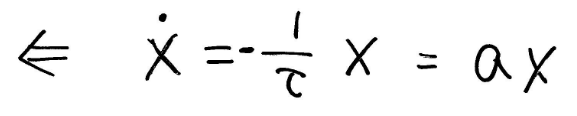 ⇐ ẋ = -1/τ x = ax